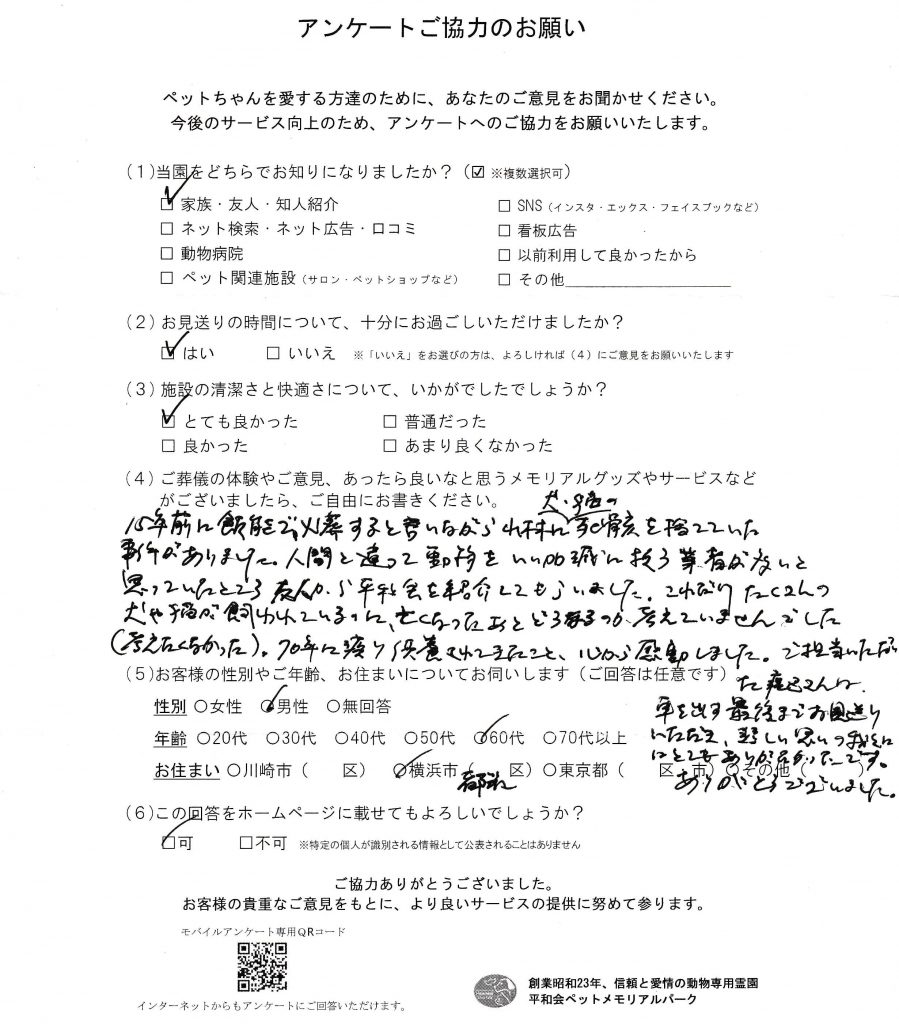 アンケートご協力のお願い
ペットちゃんを愛する方達のために、あなたのご意見をお聞かせください。
今後のサービス向上のため、アンケートへのご協力をお願いいたします。
(1)当園をどちらでお知りになりましたか？（☑ ※複数選択可）
☑ 家族・友人・知人紹介
□ ネット検索・ネット広告・口コミ
□ 動物病院
□ ペット関連施設（サロン・ペットショップなど）
□ SNS（インスタ・エックス・フェイスブックなど）
□ 看板広告
□ 以前利用して良かったから
□ その他
(2)お見送りの時間について、十分にお過ごしいただけましたか？
☑ はい □ いいえ ※「いいえ」をお選びの方は、よろしければ（4）にご意見をお願いいたします
(3)施設の清潔さと快適さについて、いかがでしたでしょうか？
☑ とても良かった □ 普通だった
□ 良かった □ あまり良くなかった
(4)ご葬儀の体験やご意見、あったら良いなと思うメモリアルグッズやサービスなど
がございましたら、ご自由にお書きください。
15年前に飯能で、火葬すると言いながら山林に犬・猫の死骸を捨てていた
事件がありました。人間と違って動物をいい加減に扱う業者が多いと
思っていたところ 友人から平和会を紹介してもらいました。これだけたくさんの
犬や猫が飼われているのに、亡くなったあとどうなるのか考えていませんでした
(考えたくなかった)。70年に渡り供養されてきたこと、心から感動しました。ご担当いただい
た さんは、
車を出す最後までお見送り
いただき、悲しい思いの我々に
はとてもありがたかったです。
ありがとうございました。
(5)お客様の性別やご年齢、お住まいについてお伺いします（ご回答は任意です）
性別 ○女性 ○男性 ○無回答
年齢 ○20代 ○30代 ○40代 ○50代 ○60代 ○70代以上
お住まい ○川崎市（ 区）○横浜市（都筑 区）○東京都（ 区・市）○その他（ ）
(6)この回答をホームページに載せてもよろしいでしょうか？
☑可 □不可 ※特定の個人が識別される情報として公表されることはありません
ご協力ありがとうございました。
お客様の貴重なご意見をもとに、より良いサービスの提供に努めて参ります。
モバイルアンケート専用QRコード
インターネットからもアンケートにご回答いただけます。
創業昭和23年、信頼と愛情の動物専用霊園
平和会ペットメモリアルパーク